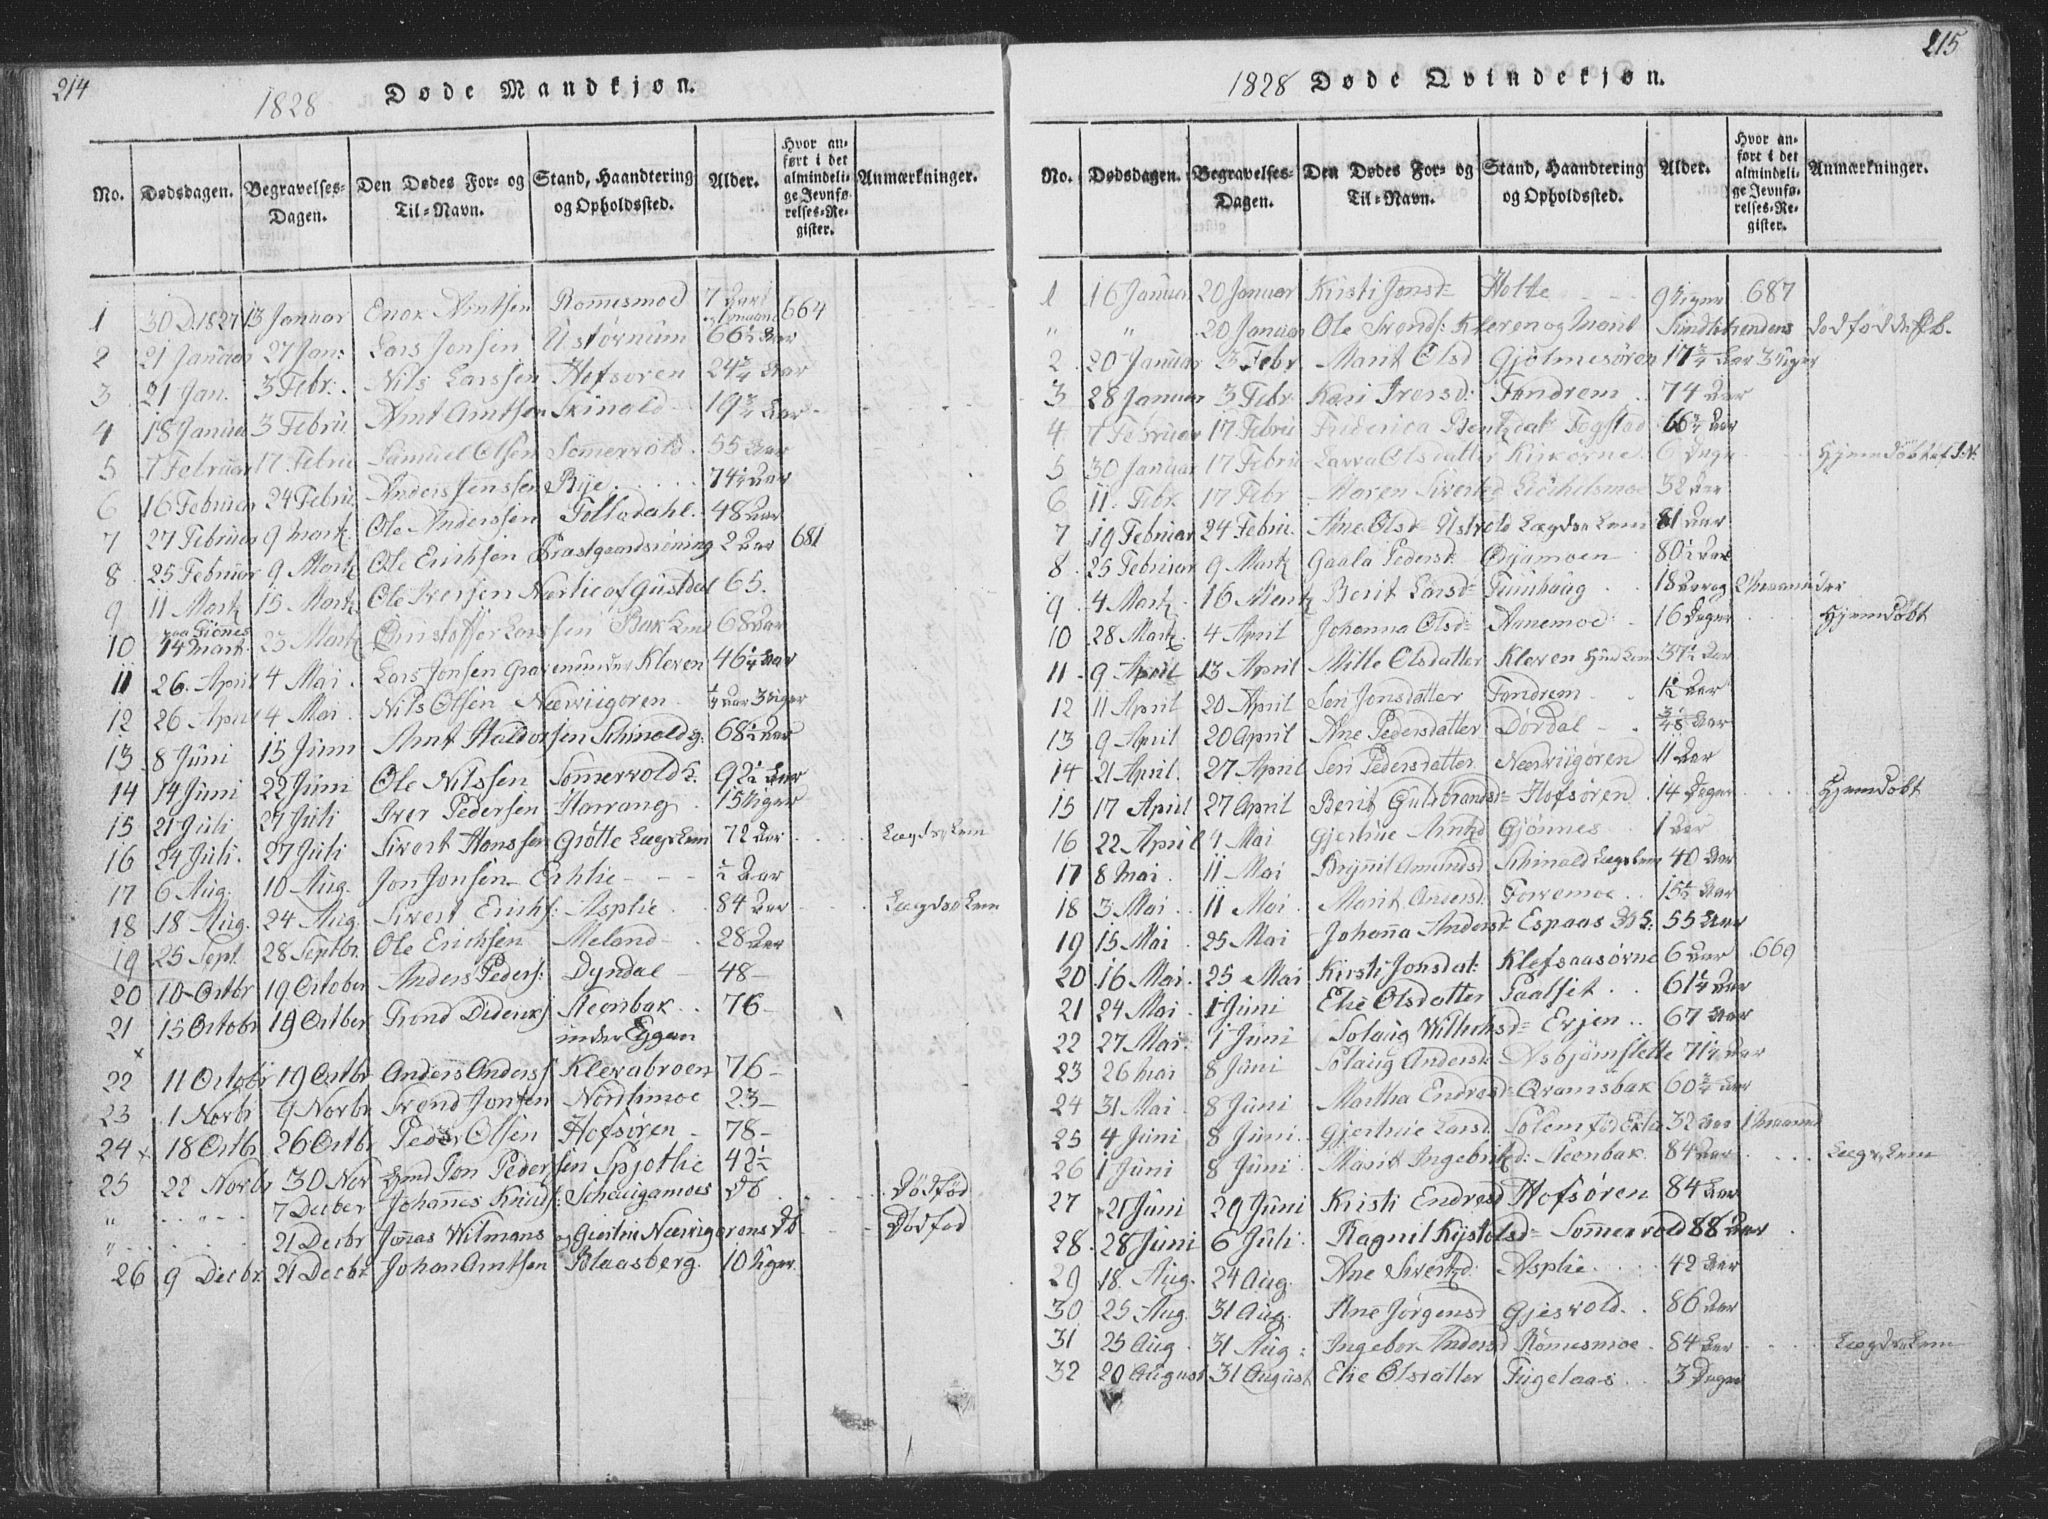 214
1828 Døde Mandkjøn.
No. Dødsdagen. Begravelses-Dagen. Den Dødes For- og Til-Navn. Stand, Haandtering og Opholdssted. Alder. Hvor anført i det almindelige Jevnførelses-Register. Anmærkninger.
1 30 D. 1827 13 Januar Enok Arntsen Romusmoe 7 Aar 664
2 21 Januar 27 Jan: Lars Jonsen Ustørnum 66½ Aar
3 21 Jan. 3 Febr. Nils Larssen Hofsøren 24¾ Aar
4 18 Janua 3 Febru Arnt Arntsen Skinald 19¾ Aar
5 7 Februar 17 Febru Samuel Olsen Somervold 55 Aar
6 16 Februar 24 Febru. Anders Jenssen Rye 74½ Aar
7 27 Februar 9 Mark. Ole Anderssen Tolladahl. 48 Aar
8 25 Februar 9 Mark Ole Erichsen Præstgaardsrøning 2 Aar 681
9 11 Mark 15 Mark. Ole Iversen Nærlie af Gusdal 65.
10 paa Giønes 14 Mart. 23 Mark Christoffer Larssen Bak Lem 68 Aar
11 26. April 4 Mai. Lars Jonsen Graven under Kleven 46¼ Aar
12 26 April 4 Mai Nils Olsen Nærvigøren ¼ Aar 3 Uger
13 8 Juni 15 Juni Arnt Haldorsen Schinald 68½ Aar
14 14 Juni 22 Juni Ole Nilssen Somervold L. 92½ Aar
15 21 Juli 27 Juli Iver Pedersen Harrang 15 Uger
16 24 Juli. 27 Juli Sivert Hanssen Grøtte Lægs Lem 72 Aar Lægds Lem
17 6 Aug. 10 Aug. Jon Jonsen Echlie ½ Aar
18 18 Aug. 24 Aug. Sivert Erichs: Asplie 84 Aar Lægds Lem
19 25 Sept. 28 Septbr. Ole Erichsen Meland 28 Aar
20 10 Octbr 19 October Anders Peders: Dyrdal 48
21 15 Octobr 19 Octber Trond Dideriks Steenbak under Eggen 76
22 11 Octobr 19 Octbr Anders Anders Klevabroen 76
23 1 Novbr 9 Novbr Svend Jonsen Nordimoe 23
24 18 Octbr 26 Octbr Peder Olsen Hofsøren 78
25 22 Novbr 30 Nov Jon Pedersen Spjøtlie 42½
" " 7 Decber Johannes Knuds: Schaugamoes Db Dødfød
" 21 Decbr Jonas Wilmans og Giertrue Nærvigørens Db Dødfød
26 9 Decbr 21 Decbr Johan Arntsen Blaasberg. 10 Uger
215
1828 Døde Qvindekjøn.
No. Dødsdagen. Begravelses-Dagen. Den Dødes For- og Til-Navn. Stand, Haandtering og Opholdssted. Alder. Hvor anført i det almindelige Jevnførelses-Register. Anmærkninger.
1 16 Januar 20 Januar Kristi Jonsd: Holte 9 Uger 687
" " 20 Januar Ole Svends: Kleven og Marit dødfødde Pb.
2 20 Januar 3 Febr. Marit Olsd Gjølmesøren 17¾ Aar 3 Uger
3 28 Januar 3 Febr. Kari Iversd: Fandrem 74 Aar
4 7 Februar 17 Febru Frederica Tøgstad 66¾ Aar
5 30 Januar 17 Febru Larva Olsdatter Kirkørne 6 Dage Hjemdøbt
6 11. Febr. 17 Febr Maren Sivertsd 32 Aar
7 19 Februar 24 Febru. Ane Olsd Lægds Lem 81 Aar
8 25 Februar 9 Mark Gaala Pedersd Øyamoen 80½ Aar
9 4 Mark 16 Mark Berit Larsd: Tuinhaug 18 Aar og 2 Maaneder
10 28 Mark. 4 April Johanna Olsd: Annemoe 16 Dager Hjemdøbt
11 9 April 13 April Mille Olsdatter Kleven Lem 37½ Aar
12 11 April 20 April Seri Jonsdatter Fandrem 1½ Aar
13 9 April 20 April Ane Pedersdatter Dørdal Aar
14 21 April. 27 April Seri Pedersdatter Nærvigøren 11 Aar
15 17 April 27 April Berit Gulbrandsd: Hofsøren 14 Dager Hjemdøbt
16 22 April 4 Mai Gjertrue Arntsd Gjønnes 1 Aar
17 8 Mai. 11 Mai Brynnil Amundsd Schinald Lægs Lem 40 Aar
18 3 Mai 11 Mai Marit Andersd Forremoe 15½ Aar
19 15 Mai 25 Mai Johanna Andersd Espaas 55 Aar
20 16 Mai. 25 Mai Kirsti Jonsdat: Klefsaasørne 6 Aar 669
21 24 Mai 1 Juni Elie Olsdatter Faalset 61½ Aar
22 27 Mai. 1 Juni Solaug Wilhelmsd Evjen 67 Aar
23 26 Mai 8 Juni Solaug Andersd: Asbjørnslette 71½ Aar
24 31 Mai 8 Juni Martha Endresd: Qvamsbak 60¾ Aar
25 4 Juni 8 Juni Gjertrue Larsd Solem 32 Aar 1 Maaned
26 1 Juni 8 Juni Marit Ingebritsd: Steenbak. 84 Aar Lægs Lem
27 21 Juni 29 Juni Kristi Endresd Hofsøren 84 Aar
28 28 Juni 6 Juli. Ragnil Kystolsd: Somervold 88 Aar
29 18. Aug. 24 Aug. Ane Sivertsd: Asplie 42 Aar
30 25 Aug. 31 Aug. Ane Jørgensd Gjesvold 86 Aar
31 25 Aug 31 Aug: Ingebor Andersd Romusmoe 84 Aar Lægds Lem
32 20 August 31 August Elie Olsdatter Fugelaas 3 Dager